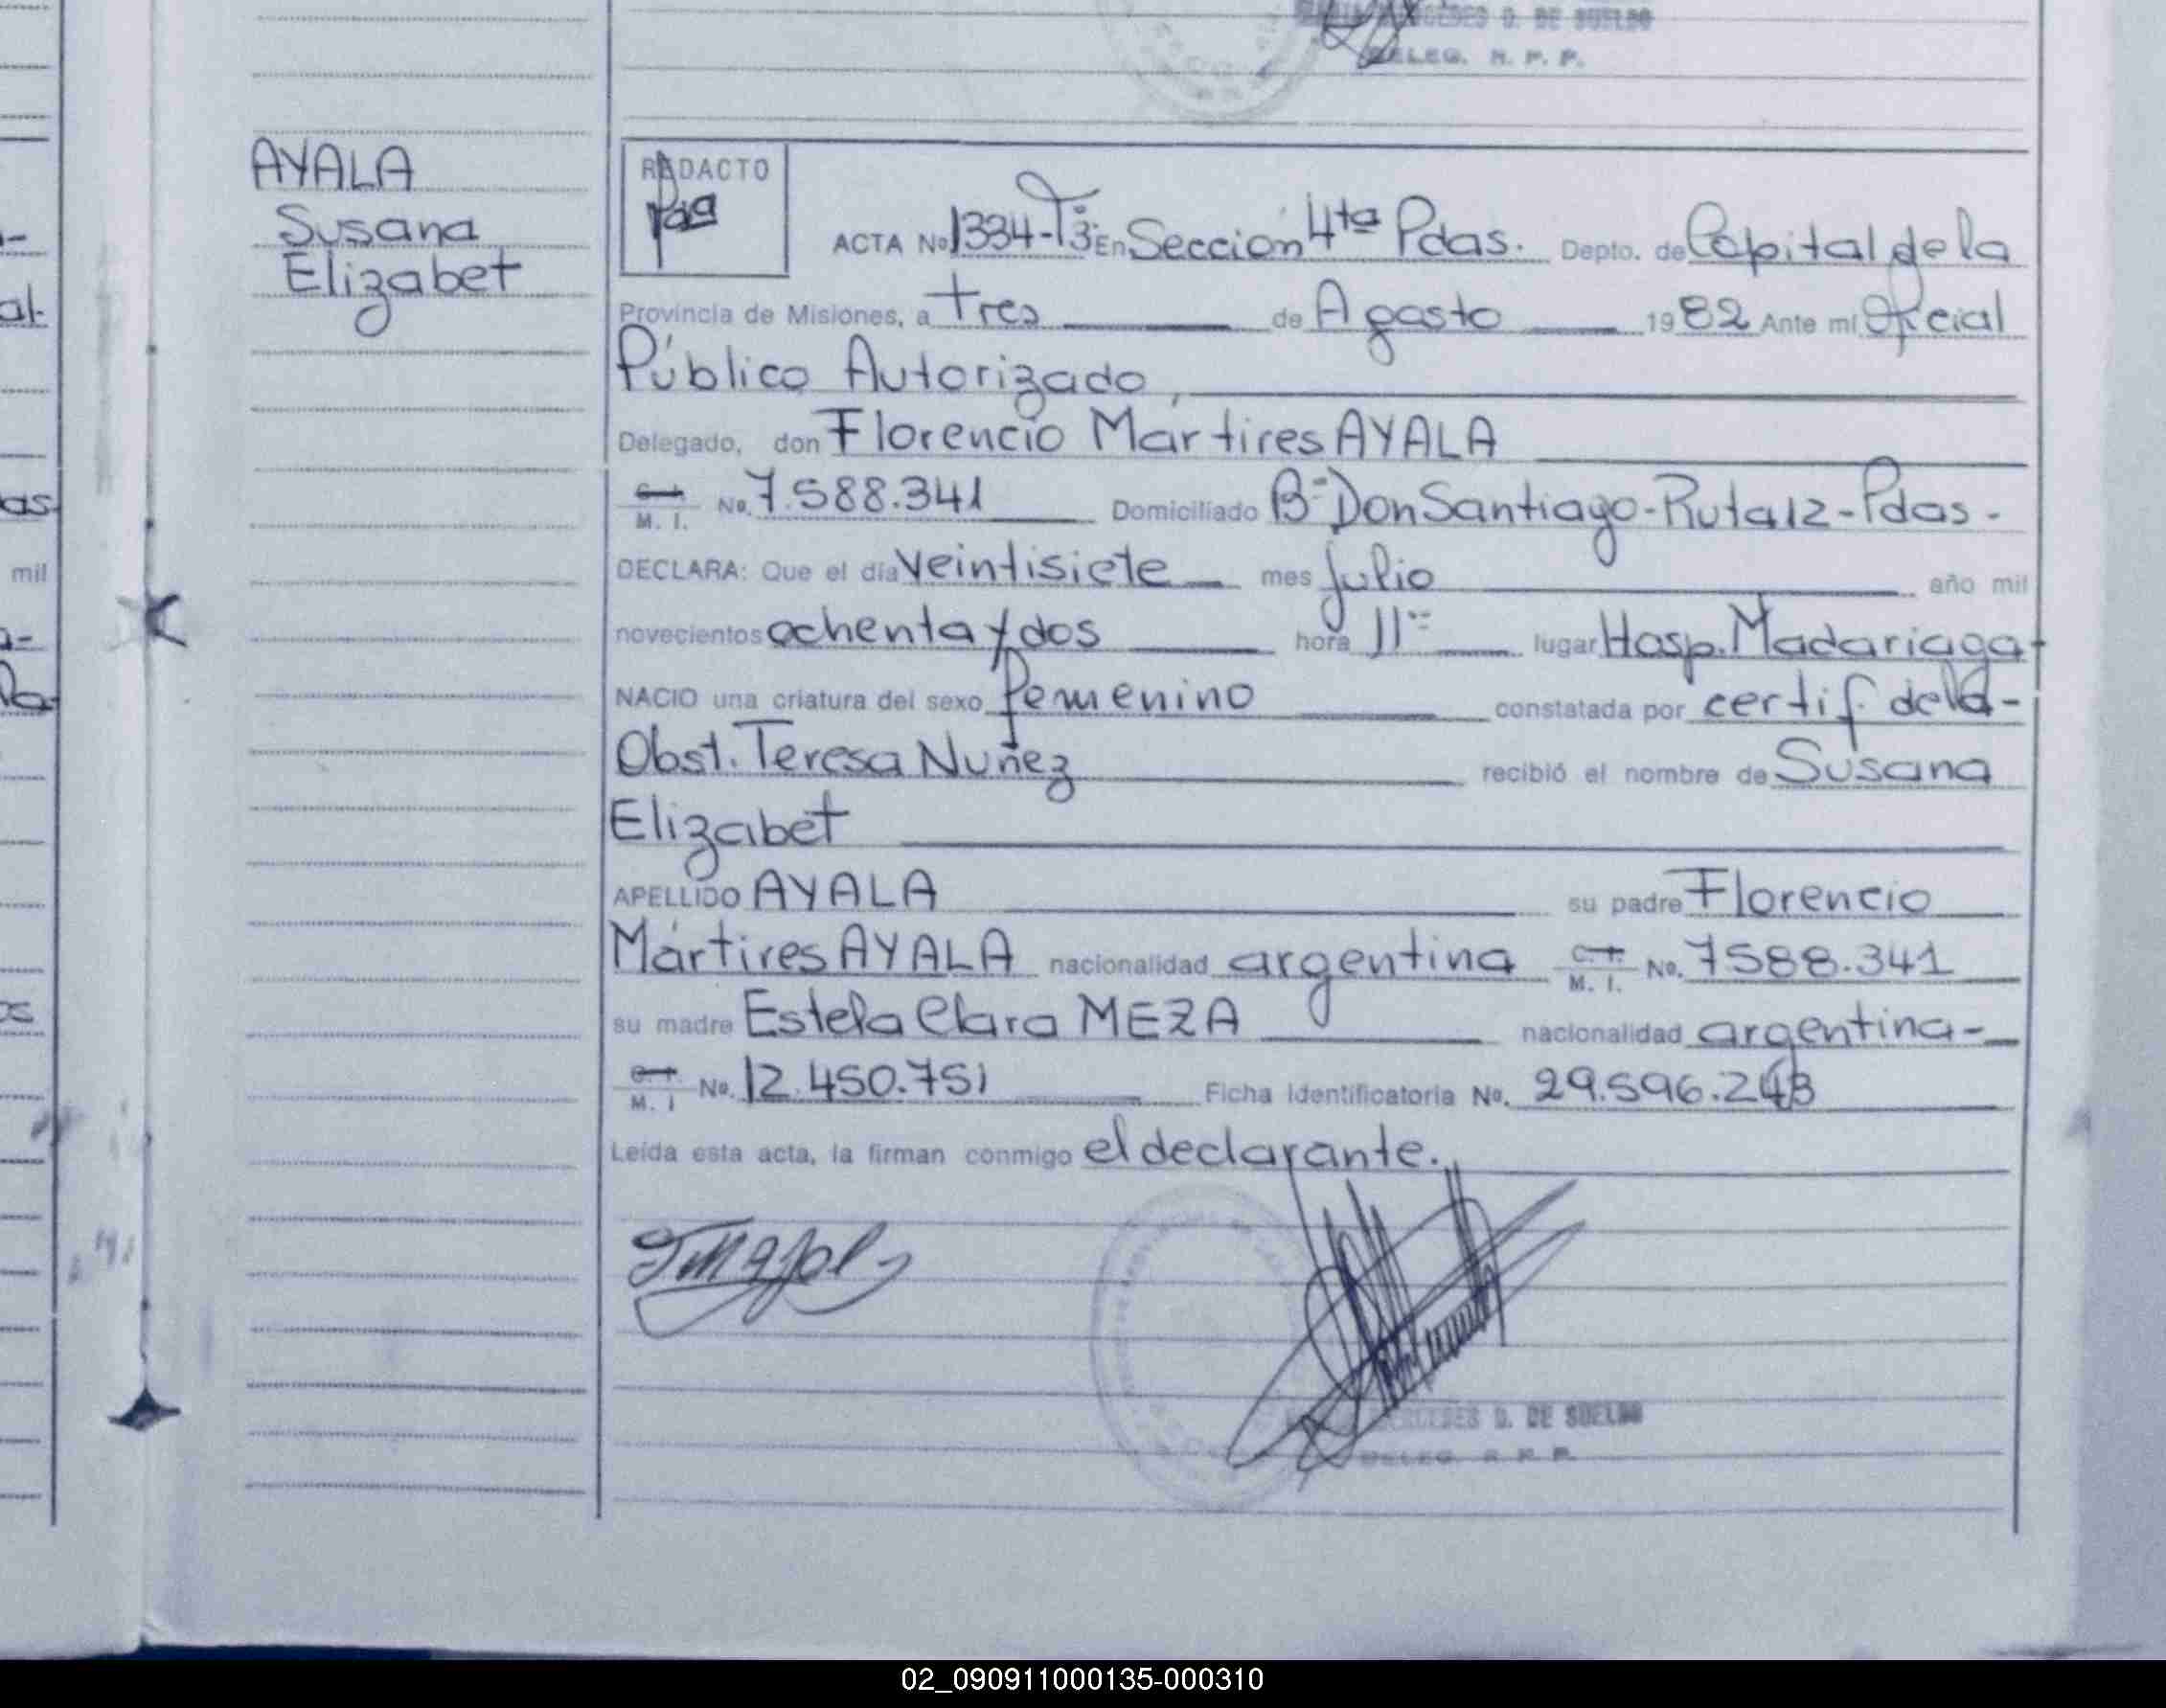 D. DE SUELDO
DELEG. R. P. P.
AYALA
Susana
Elizabet
REDACTO
ACTA No 1334-T3º En Sección 4ta Pdas. Depto. de Capital de la
Provincia de Misiones, a tres de Agosto 1982 Ante mí Oficial
Público Autorizado,
Delegado, don Florencio Mártires AYALA
C. I. M. I. No. 7.588.341 Domiciliado Bº Don Santiago-Ruta 12-Pdas-
DECLARA: Que el día veintisiete mes julio año mil
novecientos ochenta y dos hora 11 lugar Hosp. Madariaga-
NACIO una criatura del sexo femenino constatada por certif. de la-
Obst. Teresa Nuñez recibió el nombre de Susana
Elizabet
APELLIDO AYALA su padre Florencio
Mártires AYALA nacionalidad argentina C. I. M. I. No. 7588.341
su madre Estela Clara MEZA nacionalidad argentina-
C. I. M. I No. 12.450.751 Ficha Identificatoria No. 29.596.243
Leída esta acta, la firman conmigo el declarante.
D. DE SUELDO
DELEG. R. P. P.
mil
02_090911000135-000310